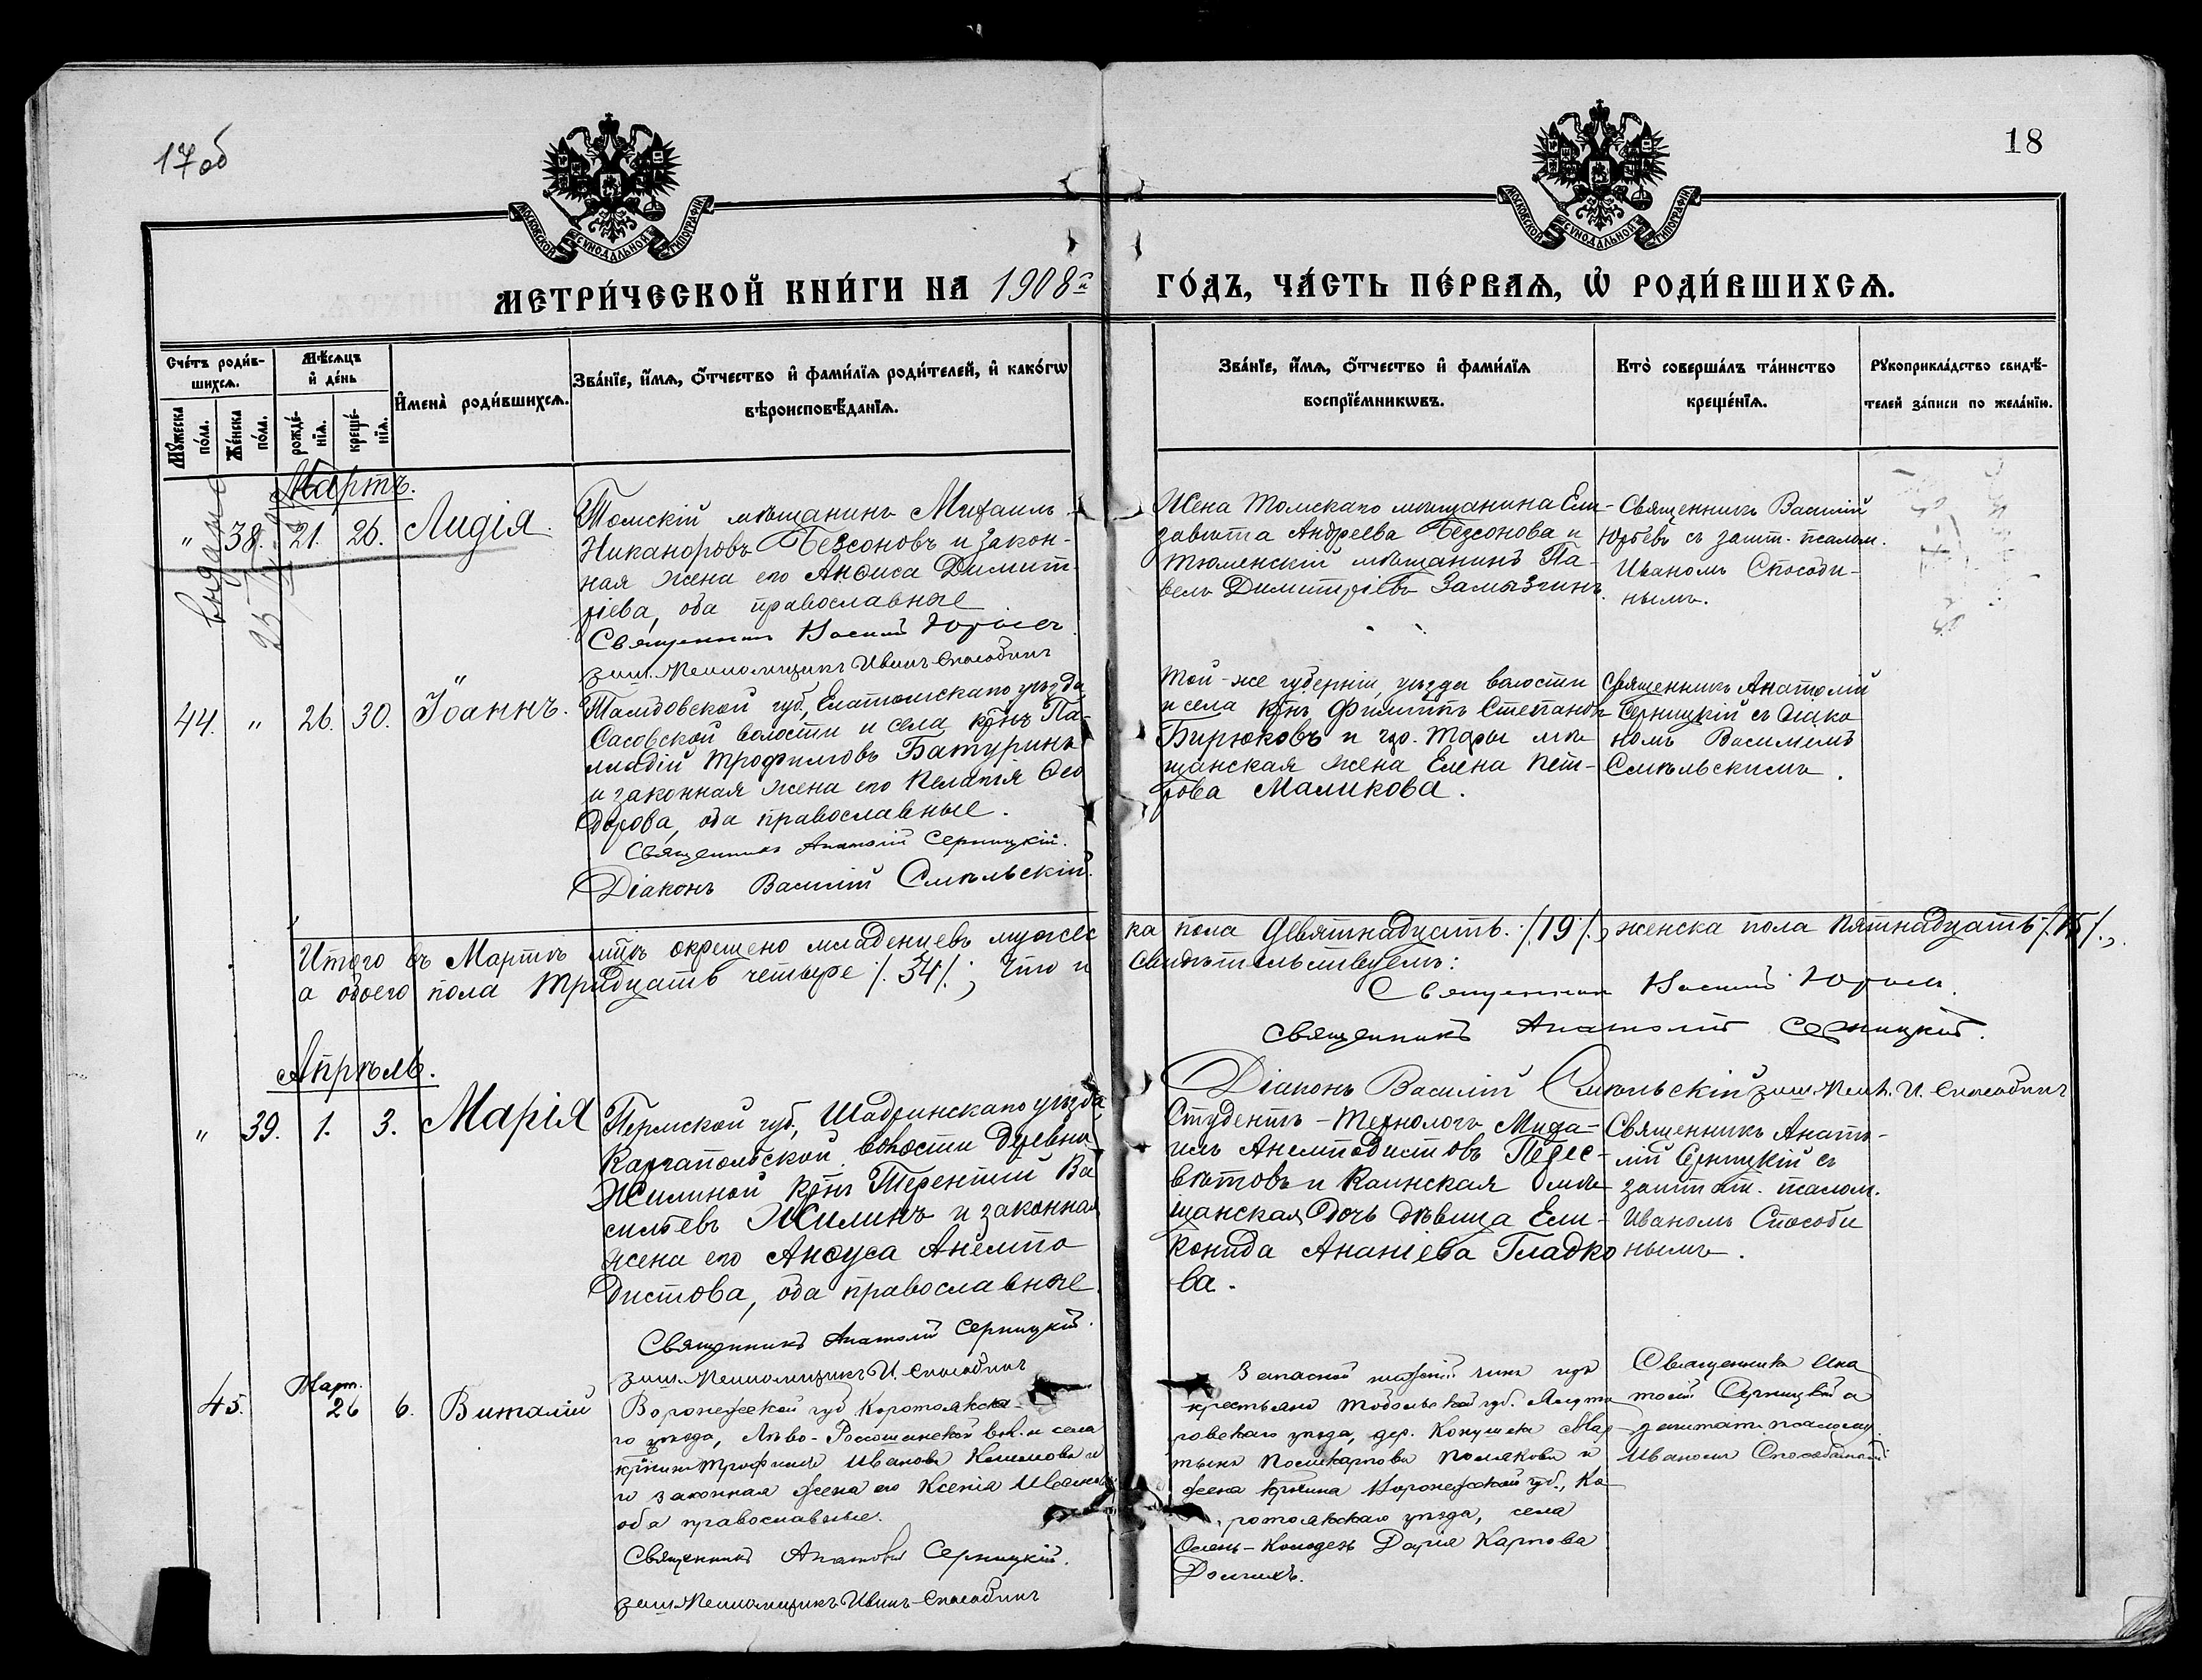 17об
18
МОСКОВСКОЙ СѴНОДАЛЬНОЙ ТИПОГРАФІИ
МОСКОВСКОЙ СѴНОДАЛЬНОЙ ТИПОГРАФІИ
МЕТРИ́ЧЕСКОЙ КНИ́ГИ НА 1908й ГО́ДЪ, ЧА́СТЬ ПЕ́РВАѦ, Ѽ РОДИ́ВШИХСѦ.
Сче́тъ роди́в-
шихсѧ.
Мꙋ́жеска по́ла.
Же́нска по́ла.
Мѣ́сѧцъ
и҆ де́нь
рожде́-
нїѧ.
креще́-
нїѧ.
И҆мена̀ роди́вшихсѧ.
Зва́нїе, и҆́мѧ, ѻ҆́тчество и҆ фами́лїѧ роди́телей, и҆ како́гѡ
вѣроисповѣ́данїѧ.
Зва́нїе, и҆́мѧ, ѻ҆́тчество и҆ фами́лїѧ
воспрїе́мникѡвъ.
Кто̀ соверша́лъ та́инство
креще́нїѧ.
Рꙋкоприкла́дство свидѣ́-
телей за́писи по жела́нїю.
Мартъ.
выдано
" 38. 21. 26. Лидія.
Томскій мѣщанинъ Михаилъ
Никаноровъ Безсоновъ и закон-
ная жена его Анѳиса Димит-
ріева, оба православные
Священникъ Василій Юрьевъ
зашт. Псаломщикъ Иванъ Способинъ
Жена Томскаго мѣщанина Ели-
завѣта Андреева Безсонова и
Тюменскій мѣщанинъ Па-
велъ Димитріевъ Замызгинъ.
Священникъ Василій
Юрьевъ съ зашт. псалом.
Иваномъ Способи-
нымъ.
44. " 26. 30. Іоаннъ.
Тамбовской губ., Елатомскаго уѣзда
Сасовской волости и села крнъ Па-
ладій Трофимовъ Батуринъ
и законная жена его Пелагія Ѳео
дорова, оба православные.
Священникъ Анатолій Серницкій.
Діаконъ Василій Смѣльскій.
Той-же губерніи, уѣзда волости
и села крнъ Филиппъ Степановъ
Бирюковъ и гор. Тары мѣ-
щанская жена Елена Пет-
рова Маликова.
Священникъ Анатолій
Серницкій съ діако
номъ Василіемъ
Смѣльскимъ.
Итого въ Мартѣ мцѣ окрещено младенцевъ мужес
ка пола девятнадцать ./.19./., женска пола пятнадцать ./.15/.,
а обоего пола тридцать четыре ./.34/.; что и
свидѣтельствуемъ:
Священникъ Василій Юрьевъ.
Священникъ Анатолій Серницкій.
Діаконъ Василій Смѣльскій зашт. Псал. И. Способинъ
Апрѣль.
" 39. 1. 3. Марія
Пермской губ., Шадринскаго уѣзда
Каргапольской волости деревни
Жилиной крнъ Терентій Ва
сильевъ Жилинъ и законная
жена его Анѳуса Анемпо
дистова, оба православные
Священникъ Анатолій Серницкій.
зашт. Псаломщикъ И. Способинъ
Студентъ-технологъ Миха-
илъ Анемподистовъ Перес-
вѣтовъ и Каинская мѣ-
щанская дочь дѣвица Ели-
конида Ананіева Гладко
ва.
Священникъ Анато-
лій Серницкій съ
заштат. псалом.
Иваномъ Способи
нымъ.
45. Март. 26 6. Виталий
Воронежской губ Коротоякска-
го уѣзда, Лѣво-Россошанской вол. и села
крнинъ Трофимъ Ивановъ
и законная жена его Ксенія Иванова
оба православные.
Священникъ Анатолій Серницкій.
зашт. Псаломщикъ Иванъ Способинъ
Запасной чинъ изъ
крестьянъ Тобольской губ. Ялуто
ровскаго уѣзда, дер. Мар
тынъ Поликарповъ Поляковъ и
жена крнина Воронежской губ., Ко-
ротоякскаго уѣзда, села
Колодезь Дарія Карпова
Долгихъ.
Священникъ Ана
толій Серницкій с
заштат. псалом.
Иваномъ Способинымъ